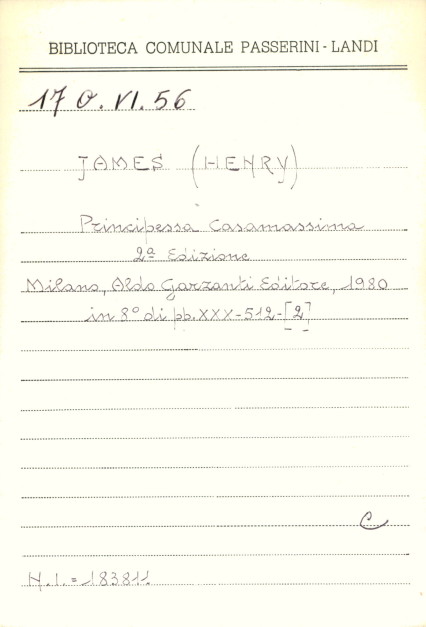 BIBLIOTECA COMUNALE PASSERINI - LANDI
17 O. VI. 56
JAMES (HENRY)
Principessa Casamassima
2ª Edizione
Milano, Aldo Garzanti Editore, 1980
in 8° di pp. XXX-512-[2]
C
N.I. = 183811